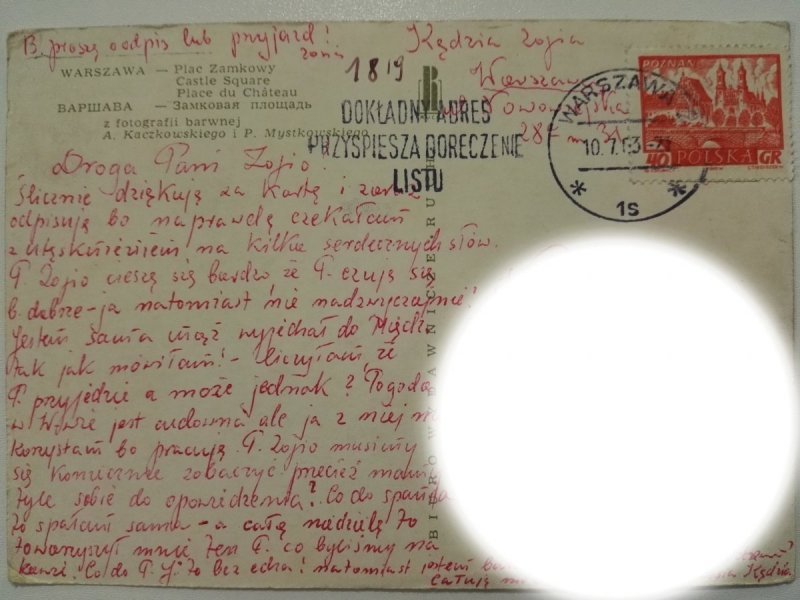 B. proszę odpis lub przyjazd!
Zosia
Kędzia Zofia
Warszawa
28 m 31
1819
WARSZAWA — Plac Zamkowy
Castle Square
Place du Château
ВАРШАВА — Замковая площадь
z fotografii barwnej
A. Kaczkowskiego i P. Mystkowskiego
DOKŁADNY ADRES
PRZYSPIESZA DORĘCZENIE
LISTU
WARSZAWA
10.7.63
1s
POZNAŃ
40 POLSKA GR
Droga Pani Zofio.
Ślicznie dziękuję za kartę i zaraz
odpisuję bo naprawdę czekałam
z utęsknieniem na kilka serdecznych słów.
P. Zofio cieszę się bardzo że P. czuje się
b. dobrze – ja natomiast nie nadzwyczajnie!
Jestem sama mąż wyjechał do Międz
tak jak mówiłam! – liczyłam że
P. przyjedzie a może jednak? Pogoda
w W-wie jest cudowna ale ja z niej
korzystam bo pracuję. P. Zofio musimy
się koniecznie zobaczyć przecież mamy
tyle sobie do opowiedzenia? Co do spania
to spałam sama – a całą niedzielę to
towarzyszył mnie ten P. co byliśmy na
kawie. Co do P. J. to bez echa! natomiast jestem
Całuję
Kędzia
BIURO WYDAWNICZE RUCH